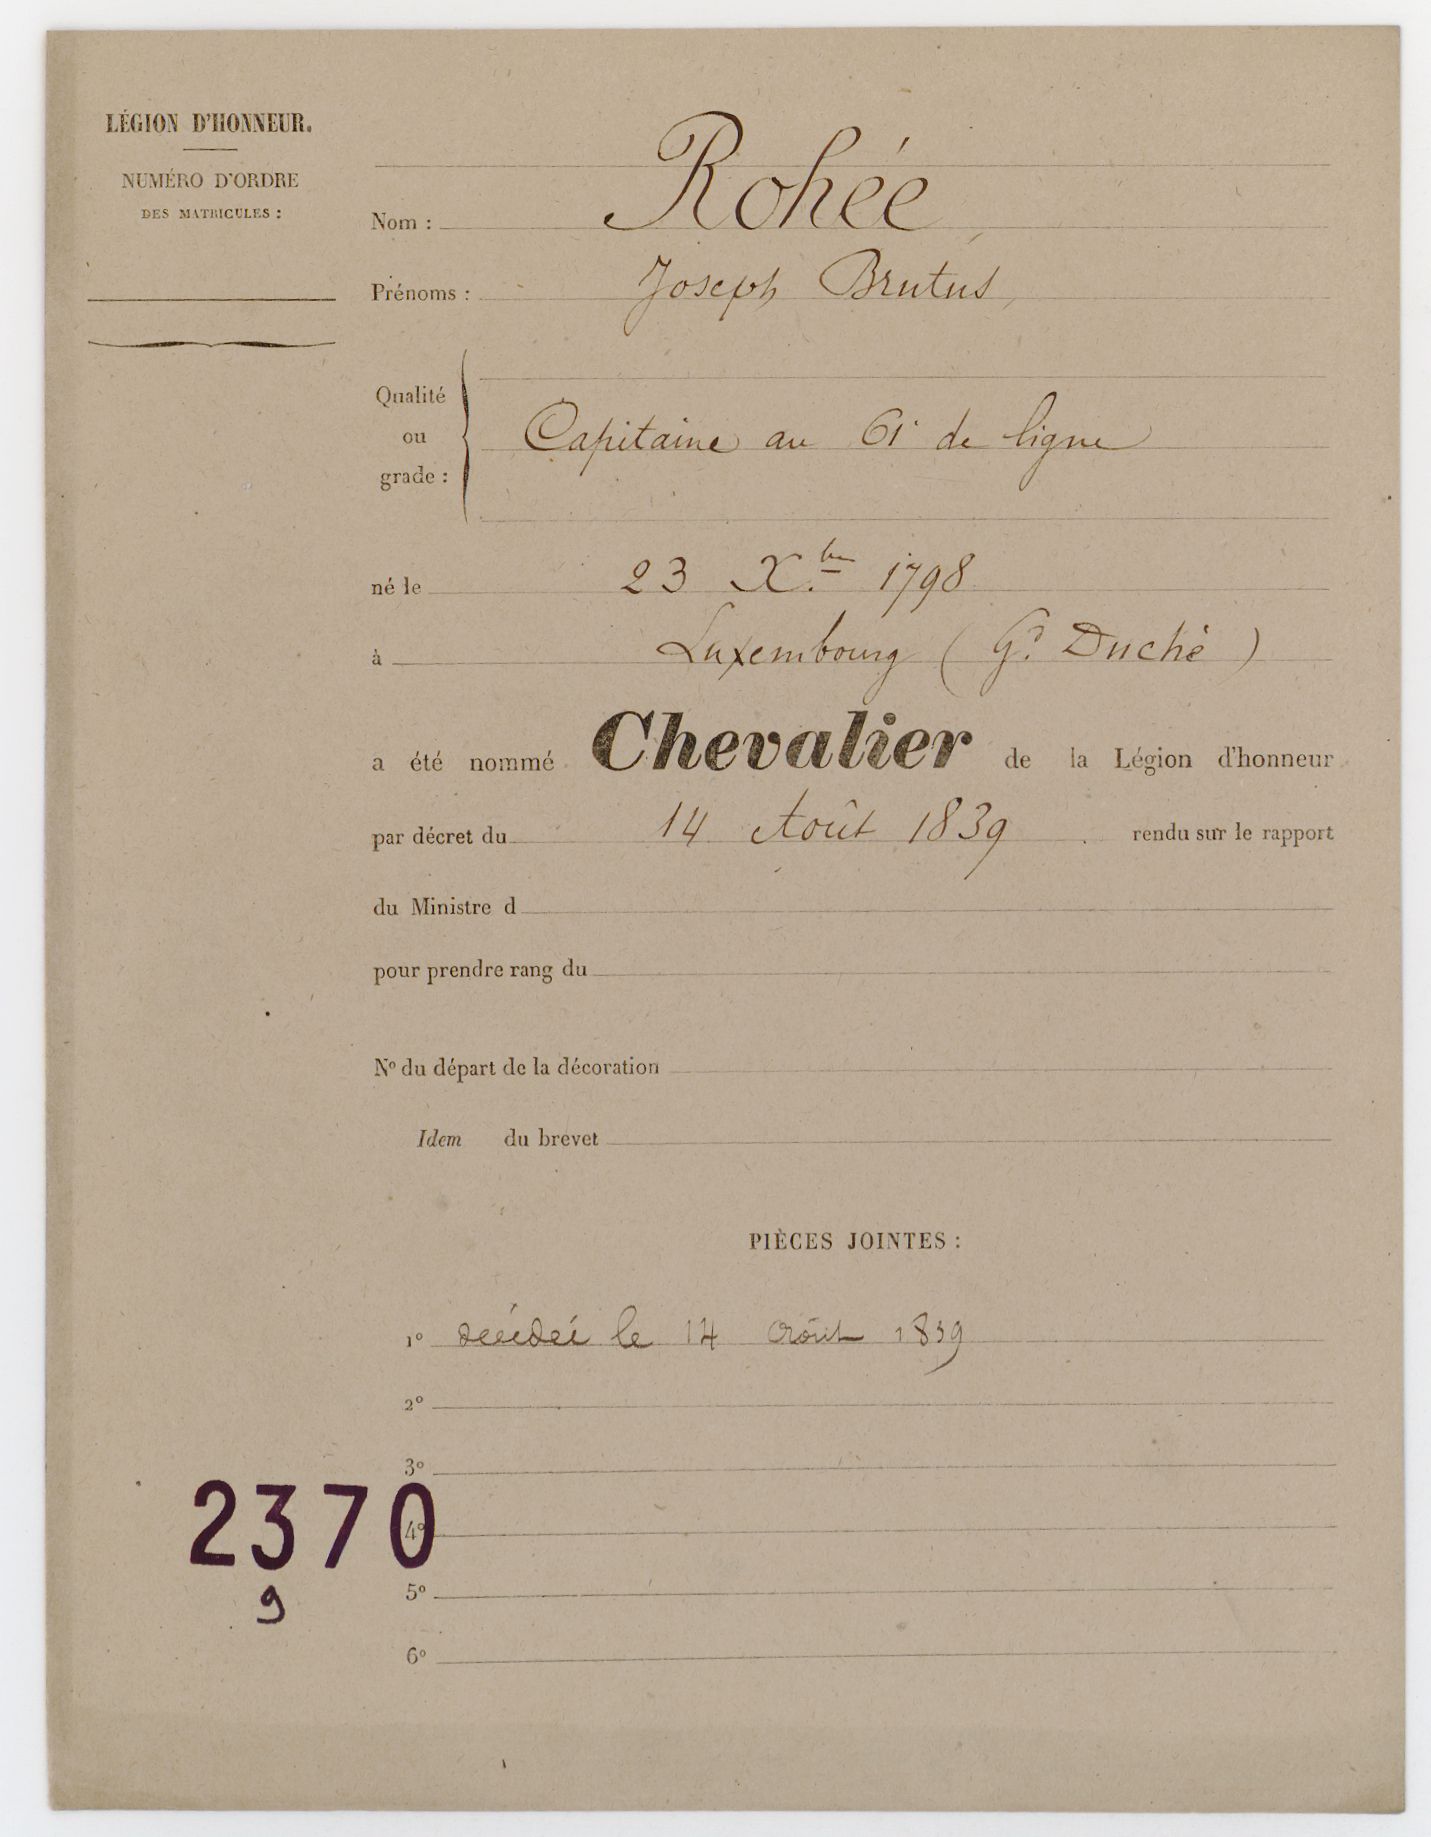 LÉGION D'HONNEUR.
NUMÉRO D'ORDRE
DES MATRICULES :
Nom : Rohée
Prénoms : Joseph Brutus,
Qualité
ou
grade :
Capitaine au 61e de ligne
né le 23 Xbre 1798
à Luxembourg (Gd Duché)
a été nommé Chevalier de la Légion d'honneur
par décret du 14 Août 1839 rendu sur le rapport
du Ministre d
pour prendre rang du
No du départ de la décoration
Idem du brevet
PIÈCES JOINTES :
1o décédé le 14 Août 1839
2o
3o
4o
5o
6o
2370
9